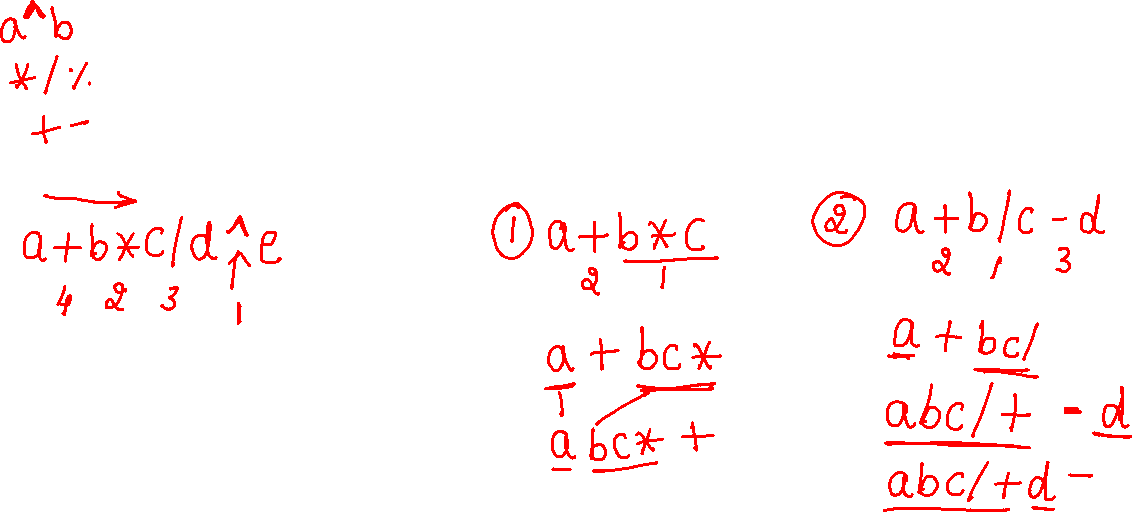 a^b
* / %
+ -
a+b*c/d^e
4 2 3 1
① a+b*c
2 1
a + bc*
abc* +
② a+b/c-d
2 1 3
a + bc/
abc/+ - d
abc/+d-